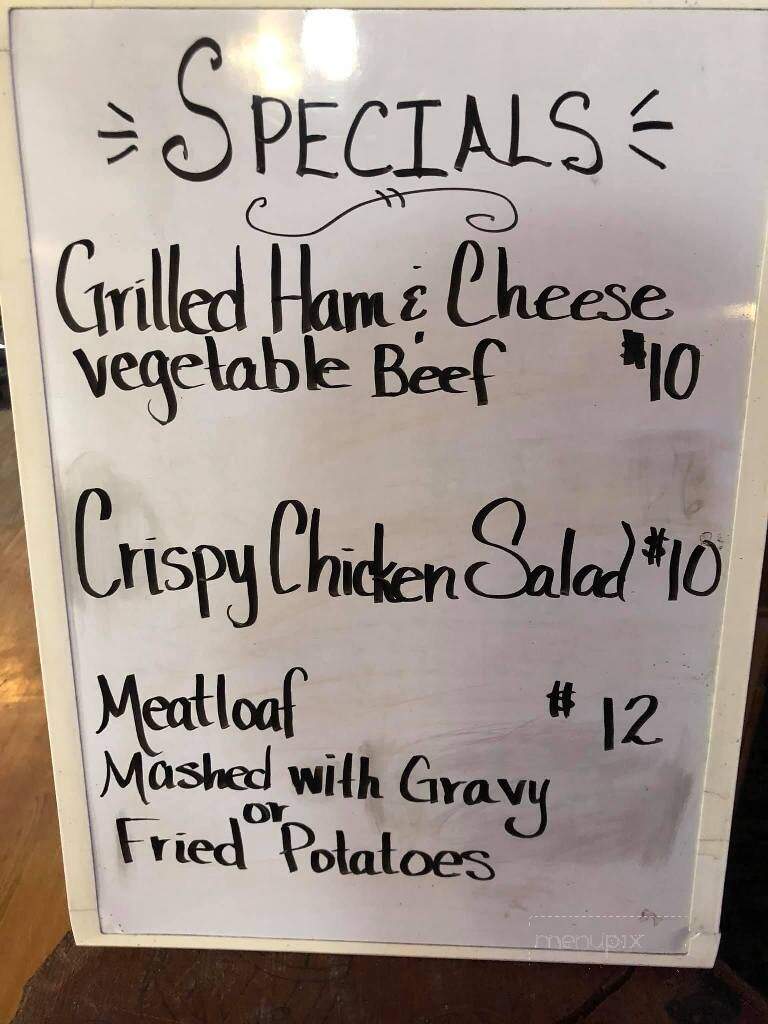 SPECIALS
Grilled Ham & Cheese
vegetable Beef $10
Crispy Chicken Salad $10
Meatloaf $12
Mashed with Gravy
or
Fried Potatoes
menupix